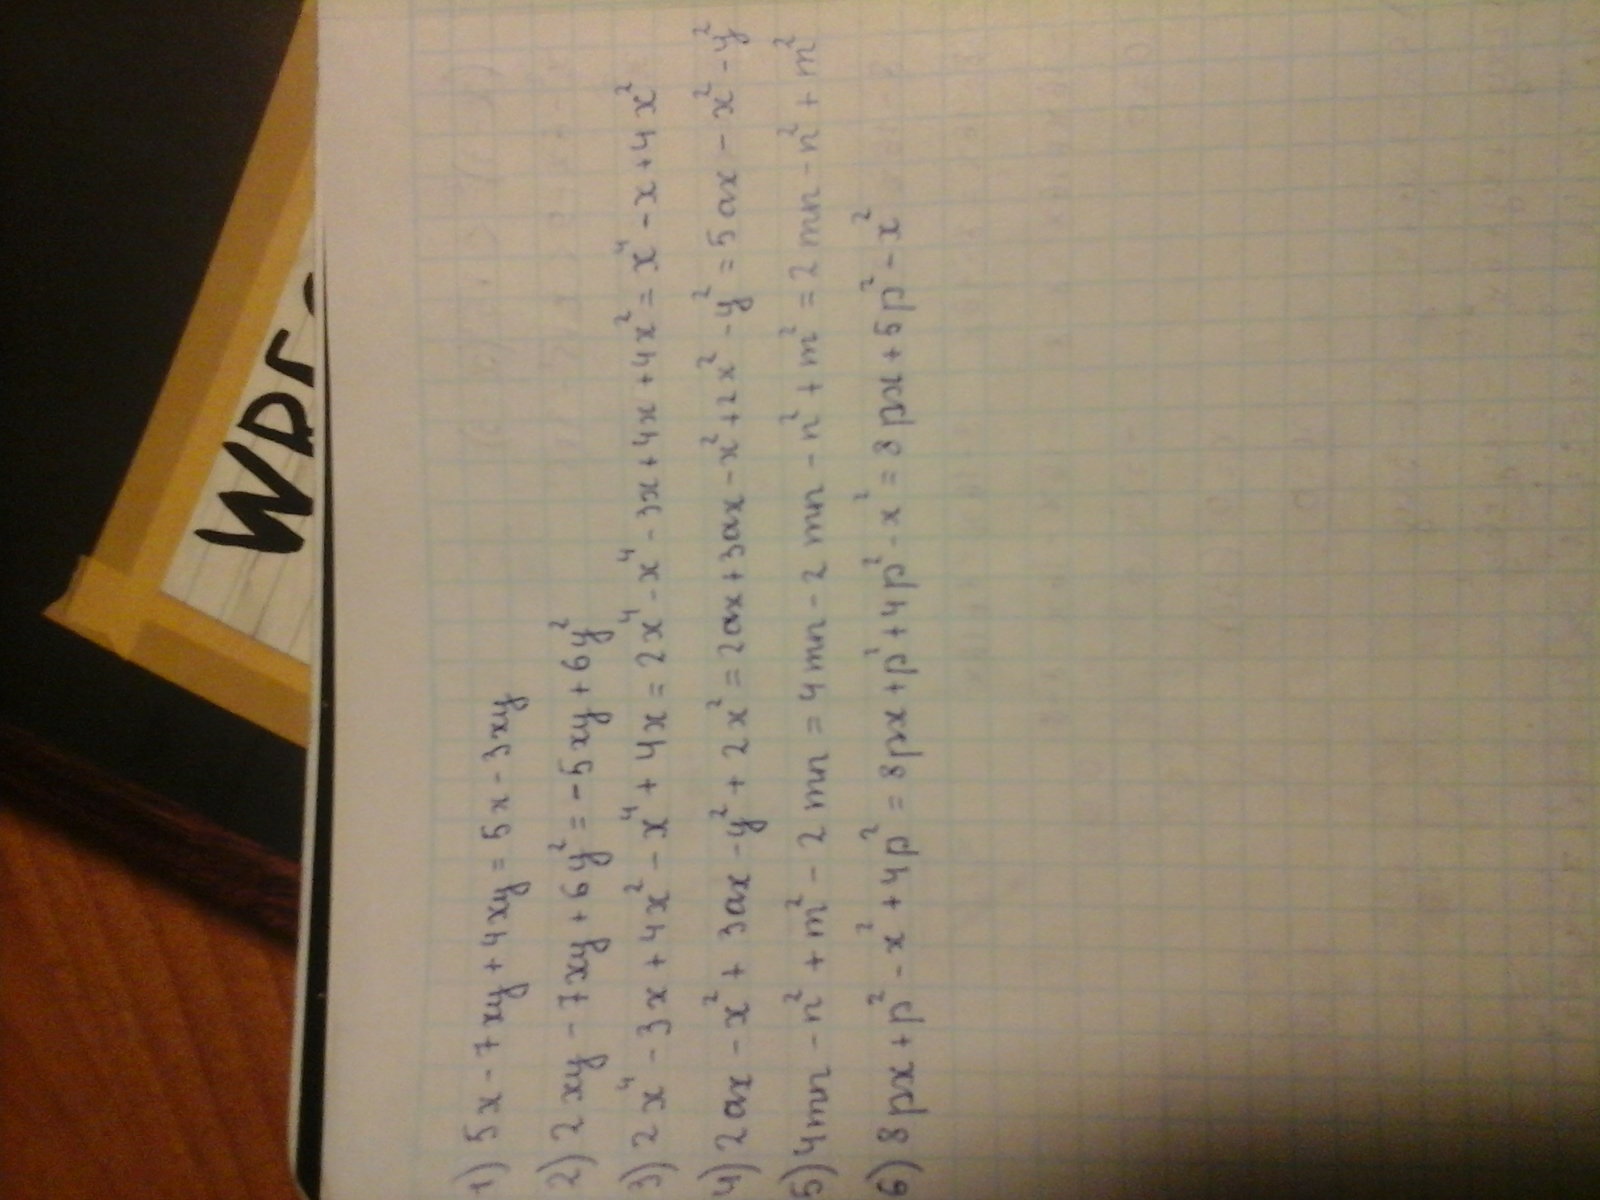 1) 5x - 7xy + 4xy = 5x - 3xy
2) 2xy - 7xy + 6y² = -5xy + 6y²
3) 2x⁴ - 3x + 4x² - x⁴ + 4x = 2x⁴ - x⁴ - 3x + 4x + 4x² = x⁴ - x + 4x²
4) 2ax - x² + 3ax - y² + 2x² = 2ax + 3ax - x² + 2x² - y² = 5ax - x² - y²
5) 4mn - n² + m² - 2mn = 4mn - 2mn - n² + m² = 2mn - n² + m²
6) 8px + p² - x² + 4p² = 8px + p² + 4p² - x² = 8px + 5p² - x²